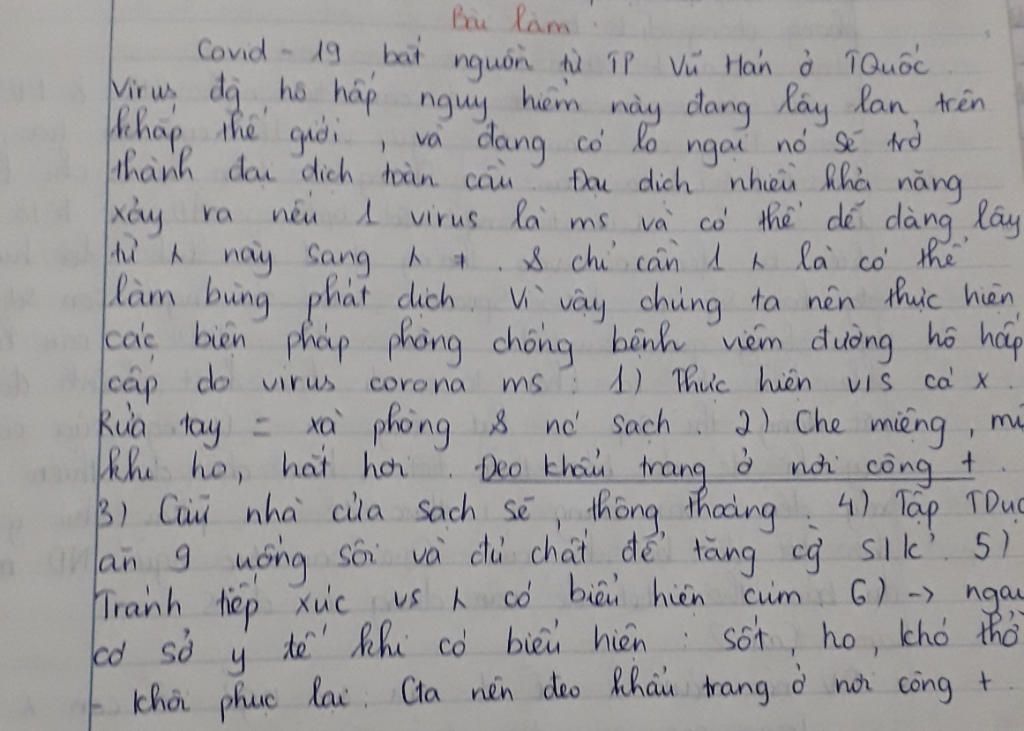 Bài làm.
Covid - 19 bắt nguồn từ TP Vũ Hán ở TQuốc.
Virus đg hô hấp nguy hiểm này đang lây lan trên
khắp thế giới, và đang có lo ngại nó sẽ trở
thành đại dịch toàn cầu. Đại dịch nhiều khả năng
xảy ra nếu 1 virus là ms và có thể dễ dàng lây
từ λ này sang λ ≠. & chỉ cần 1 λ là có thể
làm bùng phát dịch. Vì vậy chúng ta nên thực hiện
các biện pháp phòng chống bệnh viêm đường hô hấp
cấp do virus corona ms: 1) Thực hiện v/s cá x
Rửa tay = xà phòng & nc sạch. 2) Che miệng, mũ
khi ho, hắt hơi. Đeo khẩu trang ở nơi công +.
3) Giữ nhà cửa sạch sẽ, thông thoáng 4) Tập TDục
ăn 9 uống sôi và đủ chất để tăng cg s/k'. 5)
Tránh tiếp xúc vs λ có biểu hiện cúm 6) -> ngay
cơ sở y tế khi có biểu hiện: sốt, ho, khó thở
- Khôi phục lại: Cta nên đeo khẩu trang ở nơi công +.